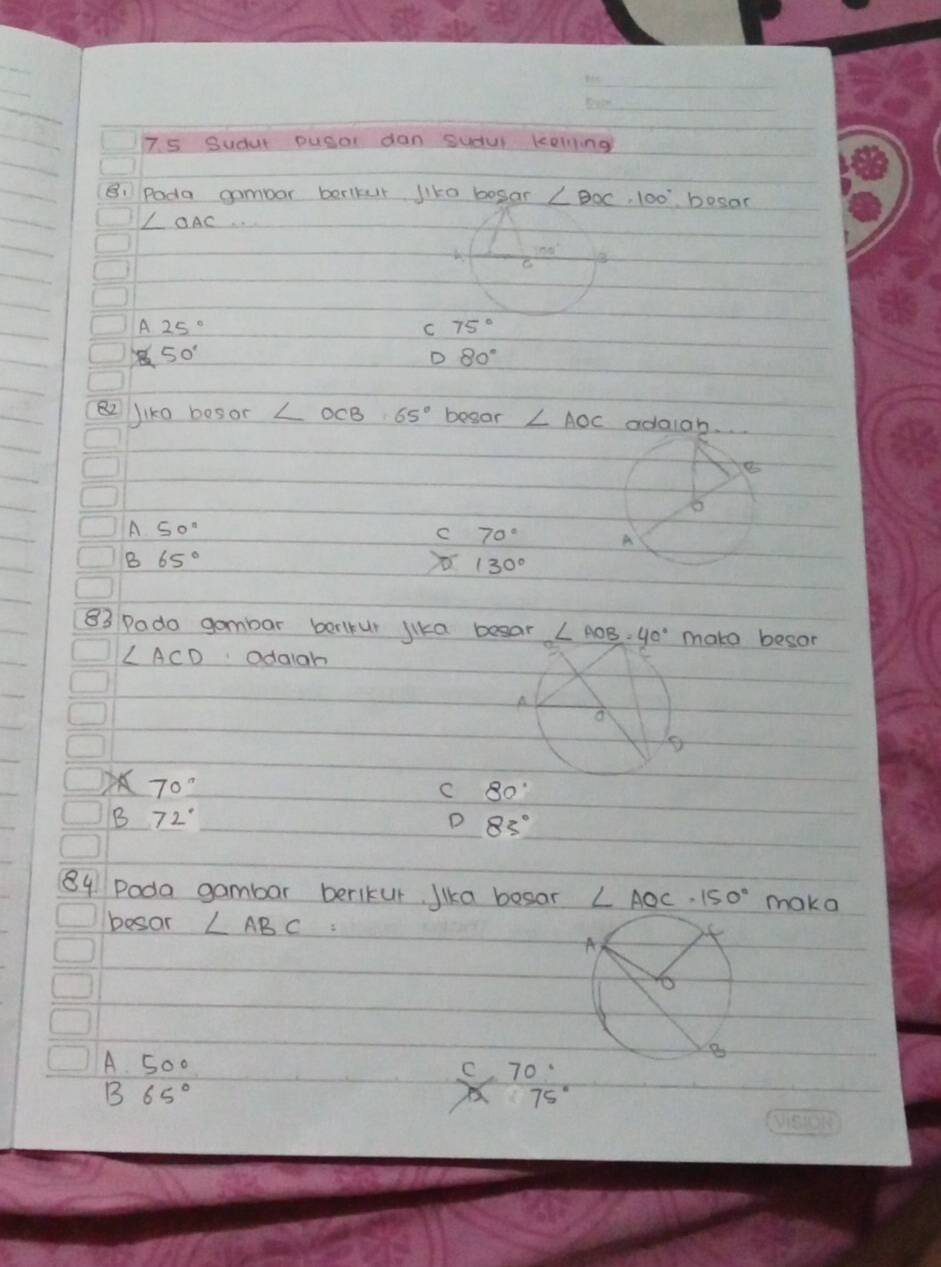 7.5 Sudut pusat dan sudut keliling
81 Pada gambar berikut jika besar ∠ BOC = 100° besar
∠ OAC ...
100°
A 25° C 75°
B 50° D 80°
82 Jika besar ∠ OCB = 65° besar ∠ AOC adalah ...
C
B
O
A
A 50° C 70°
B 65° D 130°
83 Pada gambar berikut jika besar ∠ AOB = 40° maka besar
∠ ACD = adalah
B C
A O
D
A 70° C 80°
B 72° D 85°
84 Pada gambar berikut jika besar ∠ AOC = 150° maka
besar ∠ ABC =
A C
O
B
A 50° C 70°
B 65° D 75°
VISION